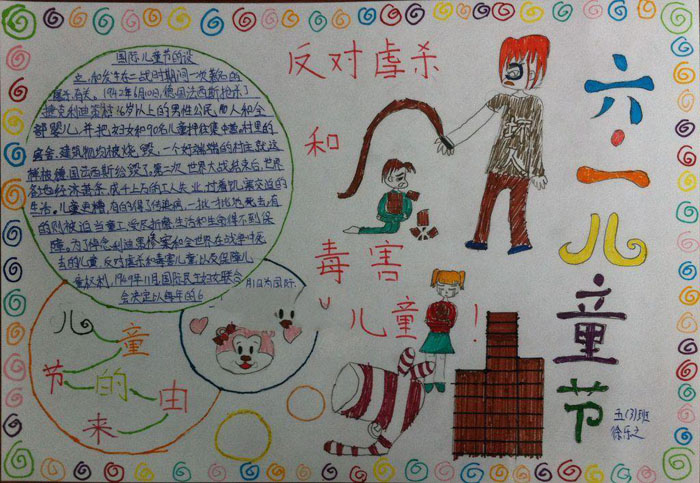 国际儿童节的设
立，和发生在二战时期间一次著名的
屠杀有关。1942年6月10日，德国法西斯枪杀了
捷克利迪策村16岁以上的男性公民，百人和全
部婴儿，并把妇女和90名儿童押往集中营。村里的
房舍、建筑物均被烧毁，一个好端端的村庄，就这
样被德国法西斯给毁了。第二次世界大战结束后，世界
各地经济萧条，成千上万的工人失业，过着饥寒交迫的
生活。儿童更糟，有的得了传染病，一批一批地死去；有
的则被迫当童工，受尽折磨，生活和生命得不到保
障。为了悼念利迪策惨案和全世界在战争中死
去的儿童，反对虐杀和毒害儿童，以及保障儿
童权利，1949年11月，国际民主妇女联合
会决定以每年的6
月1日为国际
儿童
节的由
来
反对虐杀
和
毒害
儿童！
坏人
六·一儿童节
五(3)班
徐乐之